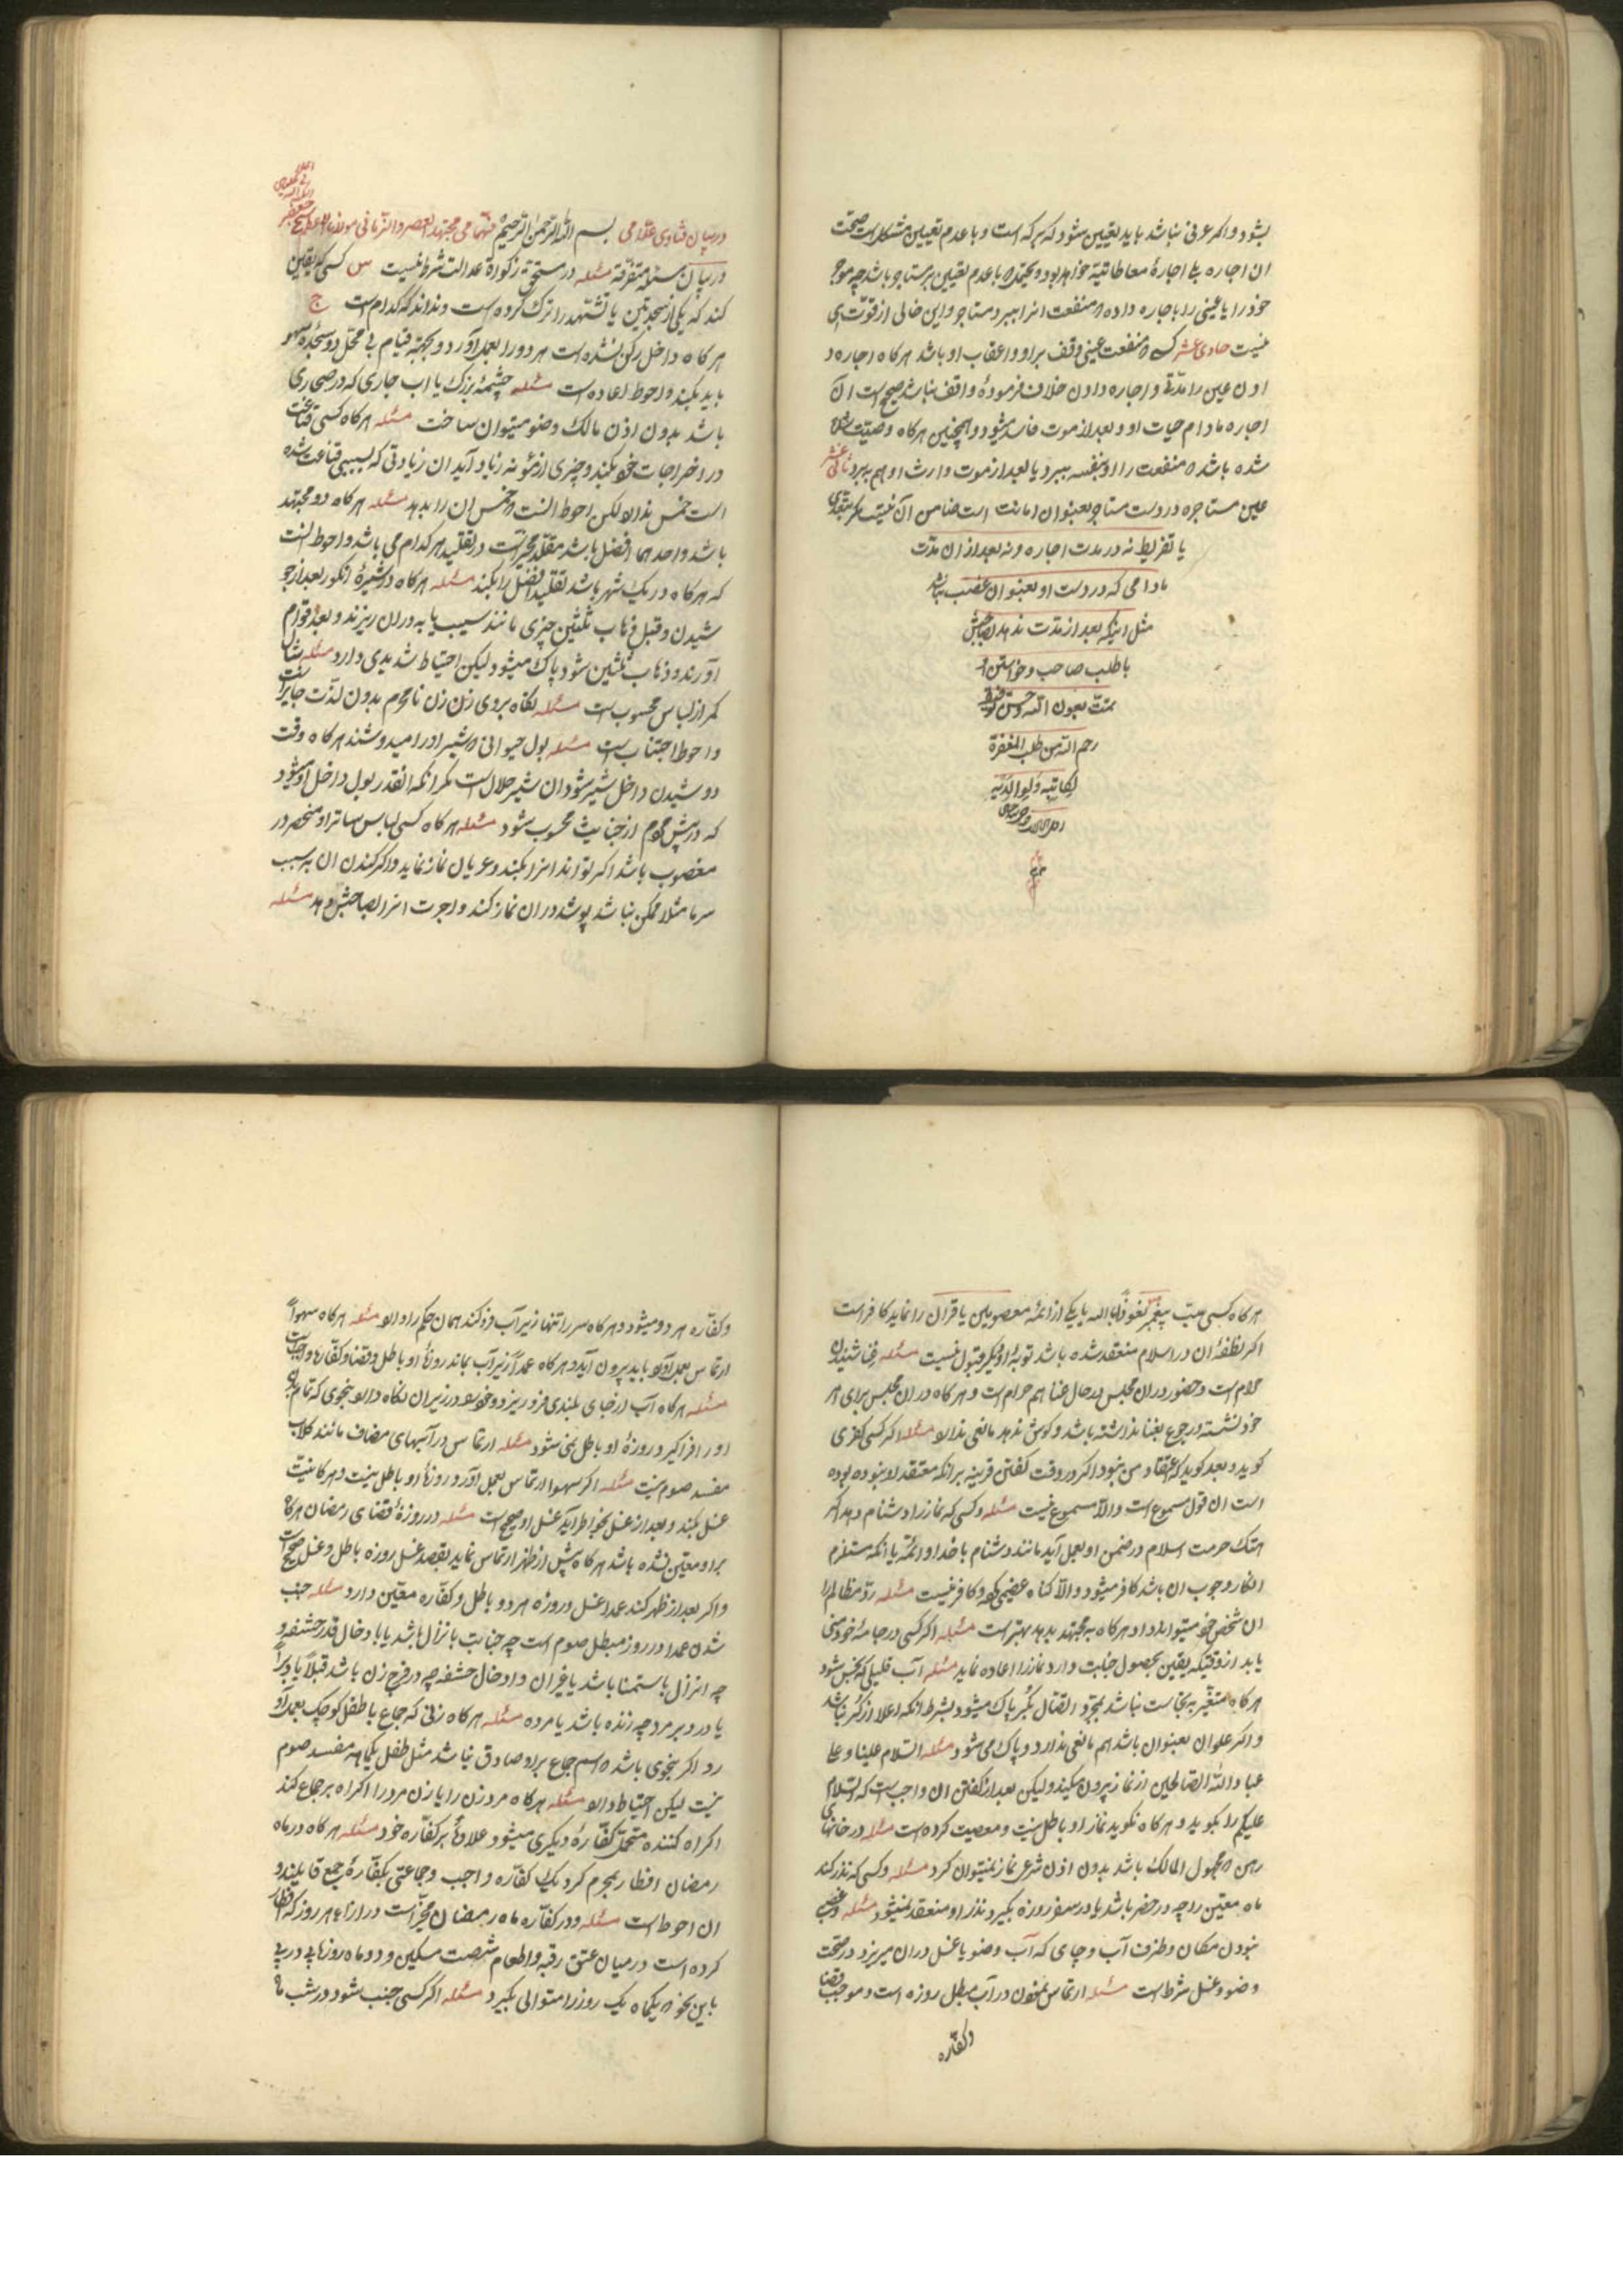 بشود و اگر عرفی نباشد باید تعیین شود که بر که است و با عدم تعیین مشکل است صحت
ان اجاره بلی اجارهٔ معاطاتیة خواهد بود و با عدم تعیین بر مستاجر باشد چه موجر
خود را یا عینی را باجاره داده که منفعت انرا ببرد مستاجر و این خالی از قوّت
نیست حادی عشر کسی که منفعت عینی وقف بر او و اعقاب او باشد هرگاه اجاره د
اد ان عین را مدّتی و اجاره دادن خلاف فرمودهٔ واقف نباشد صحیح است ان
اجاره مادام حیات او و بعد از موت فاسد میشود و همچنین هرگاه وصیّت
شده باشد که منفعت را او بنفسه ببرد یا بعد از موت وارث او هم ببرد ثانی عشر
عین مستاجره در دست مستاجر بعنوان امانت است ضامن آن نیست مگر بتعدّی
یا تفریط نه در مدت اجاره و نه بعد از ان مدّت
مادامی که در دست او بعنوان غصب نباشد
مثل اینکه بعد از مدّت ندهد بصاحبش
با طلب صاحب و خواستن او
تمّت بعون اللّه و حسن توفیقه
رحم اللّه من طلب المغفرة
لکاتبه و لوالدیه
تم
در بیان فتاوی بسم اللّه الرّحمن الرّحیم مجتهد العصر و الزّمانی مولانا
در بیان مسئله متفرّقة مسئله در مستحق زکواة عدالت شرط نیست س کسی که یقین
کند که یکی از سجدتین یا تشهّد را ترک کرده است و نداند که کدام است ج
هرگاه داخل رکن نشده است هر دو را بعمل آورد و بجهة قیام بی محل دو سجدهٔ سهو
باید بکند و احوط اعاده است مسئله چشمهٔ بزرگ یا اب جاری که در صحاری
باشد بدون اذن مالک وضو میتوان ساخت مسئله هرگاه کسی قناعت
در اخراجات خود بکند و چیزی از مئونه زیاد آید ان زیادتی که بسبب قناعت شده
است خمس ندارد لکن احوط انست که خمس ان را بدهد مسئله هرگاه دو مجتهد
باشد و احدهما افضل باشد مقلّد مخیّر است در تقلید هرکدام می باشد و احوط انست
که هرگاه در یک شهر باشد تقلید افضل را بکند مسئله هرگاه در شیرهٔ انگور بعد از جو
شیدن و قبل ذهاب ثلثین چیزی مانند سیب یا به در ان ریزند و بعد قوام
آورند و ذهاب ثلثین شود پاک میشود لیکن احتیاط شدیدی دارد مسئله شال
کمر از لباس محسوب است مسئله نگاه بروی زن نامحرم بدون لذّت جایز است
و احوط اجتناب است مسئله بول حیوانی که شیر او را میدوشند هرگاه وقت
دوشیدن داخل شیر شود ان شیر حلال است مگر انکه انقدر بول داخل او شود
که در پیش مردم از خبایث محسوب شود مسئله هرگاه کسی لباس ساتر او منحصر در
مغصوب باشد اگر تواند انرا بکند و عریان نماز نماید و اگر کندن ان به سبب
سرما مثلا ممکن نباشد پوشد در ان نماز کند و اجرت انرا بصاحبش دهد مسئله
هرگاه کسی سبّ پیغمبر نعوذ باللّه یا یکی از ائمهٔ معصومین یا قران را نماید کافر است
اگر نطفهٔ ان در اسلام منعقد شده باشد توبهٔ او دیگر قبول نیست مسئله غنا شنیدن
حرام است و حضور در ان مجلس در حال غنا هم حرام است و هرگاه در ان مجلس برای هر
خود نشسته و رجوع بغنا نداشته باشد و گوش ندهد مانعی ندارد مسئله اگر کسی کفری
گوید و بعد گوید که اعتقاد من نبود اگر در وقت گفتن قرینه بر انکه معتقد او نبوده بوده
است ان قول مسموع است والّا مسموع نیست مسئله و کسی که نماز را دشنام دهد اگر
هتک حرمت اسلام در ضمن او بعمل آید مانند دشنام با خدا و ائمّه یا انکه مستلزم
انکار وجوب ان باشد کافر میشود والّا گناه عضیمی کرده و کافر نیست مسئله ردّ مظالم را
ان شخص خود میتواند داد و هرگاه به مجتهد بدهد بهتر است مسئله اگر کسی در جامهٔ خود منی
یابد از وقتیکه یقین بحصول جنابت دارد نماز را اعاده نماید مسئله آب قلیلی که نجس شود
هرگاه متغیّر به نجاست نباشد بمجرّد اتّصال بکُر پاک میشود بشرط انکه اعلا از کُر نباشد
و اگر علو ان بعنوان باشد هم مانعی ندارد و پاک می شود مسئله السّلام علینا و علی
عباد اللّه الصّالحین از نماز بیرون میکند و لیکن بعد از گفتن ان واجب است که السّلام
علیکم را بگوید و هرگاه نگوید نماز او باطل نیست و معصیت کرده است مسئله در خانهای
رهن که مجهول المالک باشد بدون اذن شرعی نماز نمیتوان کرد مسئله و کسی که نذر کند
ماه معین را چه در حضر باشد یا در سفر روزه بگیرد نذر او منعقد نمیشود مسئله و غصب
نبودن مکان و ظرف آب و جای که آب وضو یا غسل در ان میریزد در صحت
وضو و غسل شرط است مسئله ارتماس نمودن در آب مبطل روزه است و موجب قضا
و کفّاره
و کفّاره هر دو میشود و هرگاه سر را تنها زیر آب فرو کند همان حکم را دارد مسئله هرگاه سهواً
ارتماس بعمل آورد باید بیرون آید و هرگاه عمداً زیر آب بماند روزهٔ او باطل و قضا و کفّاره واجب است
مسئله هرگاه آب از جای بلندی فرو ریزد و خود در زیر ان نگاه دارد بنحوی که تمام سر
او را فرا گیرد روزهٔ او باطل نمی شود مسئله ارتماس در آبهای مضاف مانند گلاب
مفسد صوم نیست مسئله اگر سهوا ارتماس بعمل آورد روزهٔ او باطل نیست و هرگاه نیّت
غسل بکند و بعد از غسل بخواطر آید غسل او صحیح است مسئله در روزهٔ قضای رمضان هرگاه
بر او معیّن نشده باشد هرگاه پیش از ظهر ارتماس نماید بقصد غسل روزه باطل و غسل صحیح است
و اگر بعد از ظهر کند عمدا غسل و روزه هر دو باطل و کفّاره معیّن دارد مسئله جنب
شدن عمدا در روز مبطل صوم است چه جنابت بانزال باشد یا بادخال قدر حشفه و
چه انزال باستمنا باشد یا غیر ان و ادخال حشفه چه در فرج زن باشد قبلاً یا دبراً
یا در دبر مرد چه زنده باشد یا مرده مسئله هرگاه زنی که جماع با طفل کوچک بعمل آو
رد اگر بنحوی باشد که اسم جماع بر او صادق نباشد مثل طفل یکماهه مفسد صوم
نیست لیکن احتیاط دارد مسئله هرگاه مرد زن را یا زن مرد را اکراه بر جماع کند
اکراه کننده متحمّل کفّارهٔ دیگری میشود علاوهٔ بر کفّاره خود مسئله هرگاه در ماه
رمضان افطار بمحرم کرد یک کفّاره واجب و جماعتی بکفّارهٔ جمع قایلند و
ان احوط است مسئله و در کفّاره ماه رمضان مخیّر است در ازاء هر روز که افطار
کرده است در میان عتق رقبه و اطعام شصت مسکین و دو ماه روزه پی در پی
باین نحو که یکماه یک روز را متوالی بگیرد مسئله اگر کسی جنب شود در شب ماه